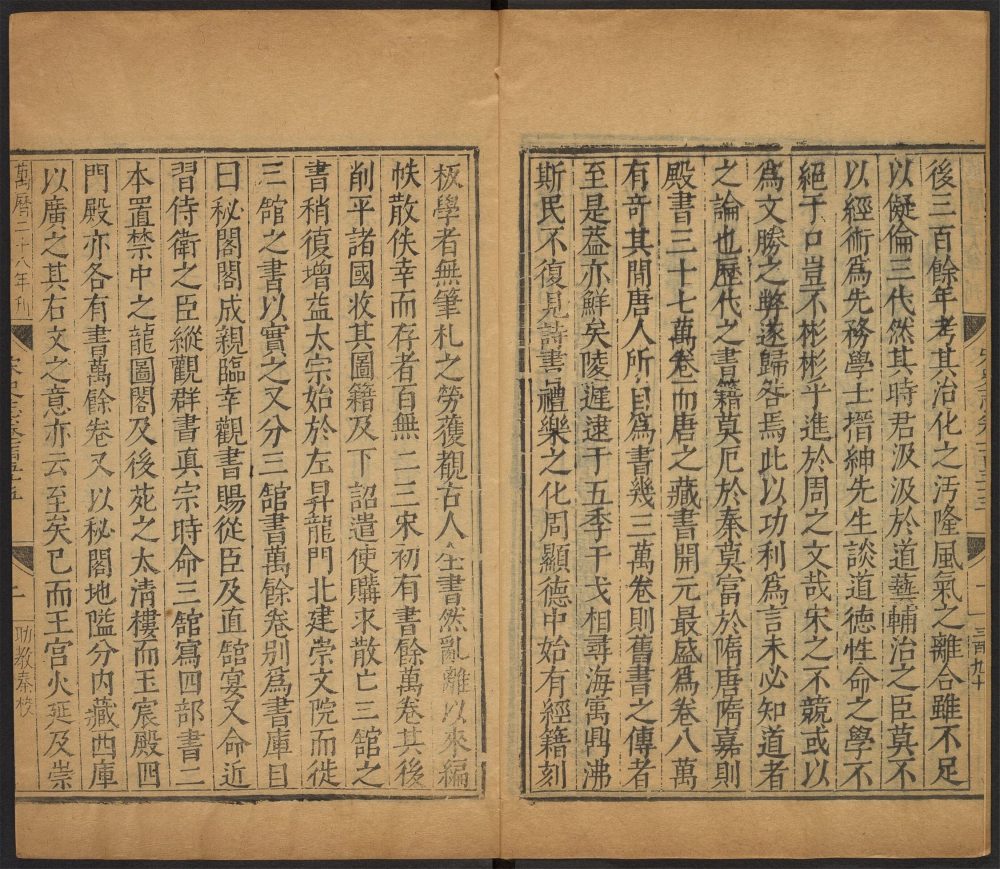 後三百餘年考其治化之汚隆風氣之離合雖不足
以儗倫三代然其時君汲汲於道藝輔治之臣莫不
以經術爲先務學士搢紳先生談道德性命之學不
絕于口豈不彬彬乎進於周之文哉宋之不競或以
爲文勝之弊遂歸咎焉此以功利爲言未必知道者
之論也歷代之書籍莫厄於秦莫富於隋唐隋嘉則
殿書三十七萬卷而唐之藏書開元最盛爲卷八萬
有奇其間唐人所自爲書幾三萬卷則舊書之傳者
至是葢亦鮮矣陵遲逮于五季干戈相尋海寓鼎沸
斯民不復見詩書禮樂之化周顯德中始有經籍刻
板學者無筆札之勞獲覩古人全書然亂離以來編
帙散佚幸而存者百無二三宋初有書餘萬卷其後
削平諸國收其圖籍及下詔遣使購求散亡三館之
書稍復增益太宗始於左昇龍門北建崇文院而徙
三館之書以實之又分三館書萬餘卷别爲書庫目
曰秘閣閣成親臨幸觀書賜從臣及直館宴又命近
習侍衛之臣縱觀群書真宗時命三館寫四部書二
本置禁中之龍圖閣及後苑之太清樓而玉宸殿四
門殿亦各有書萬餘卷又以秘閣地隘分内藏西庫
以廣之其右文之意亦云至矣已而王宫火延及崇
萬曆二十八年刊
二
助教秦校